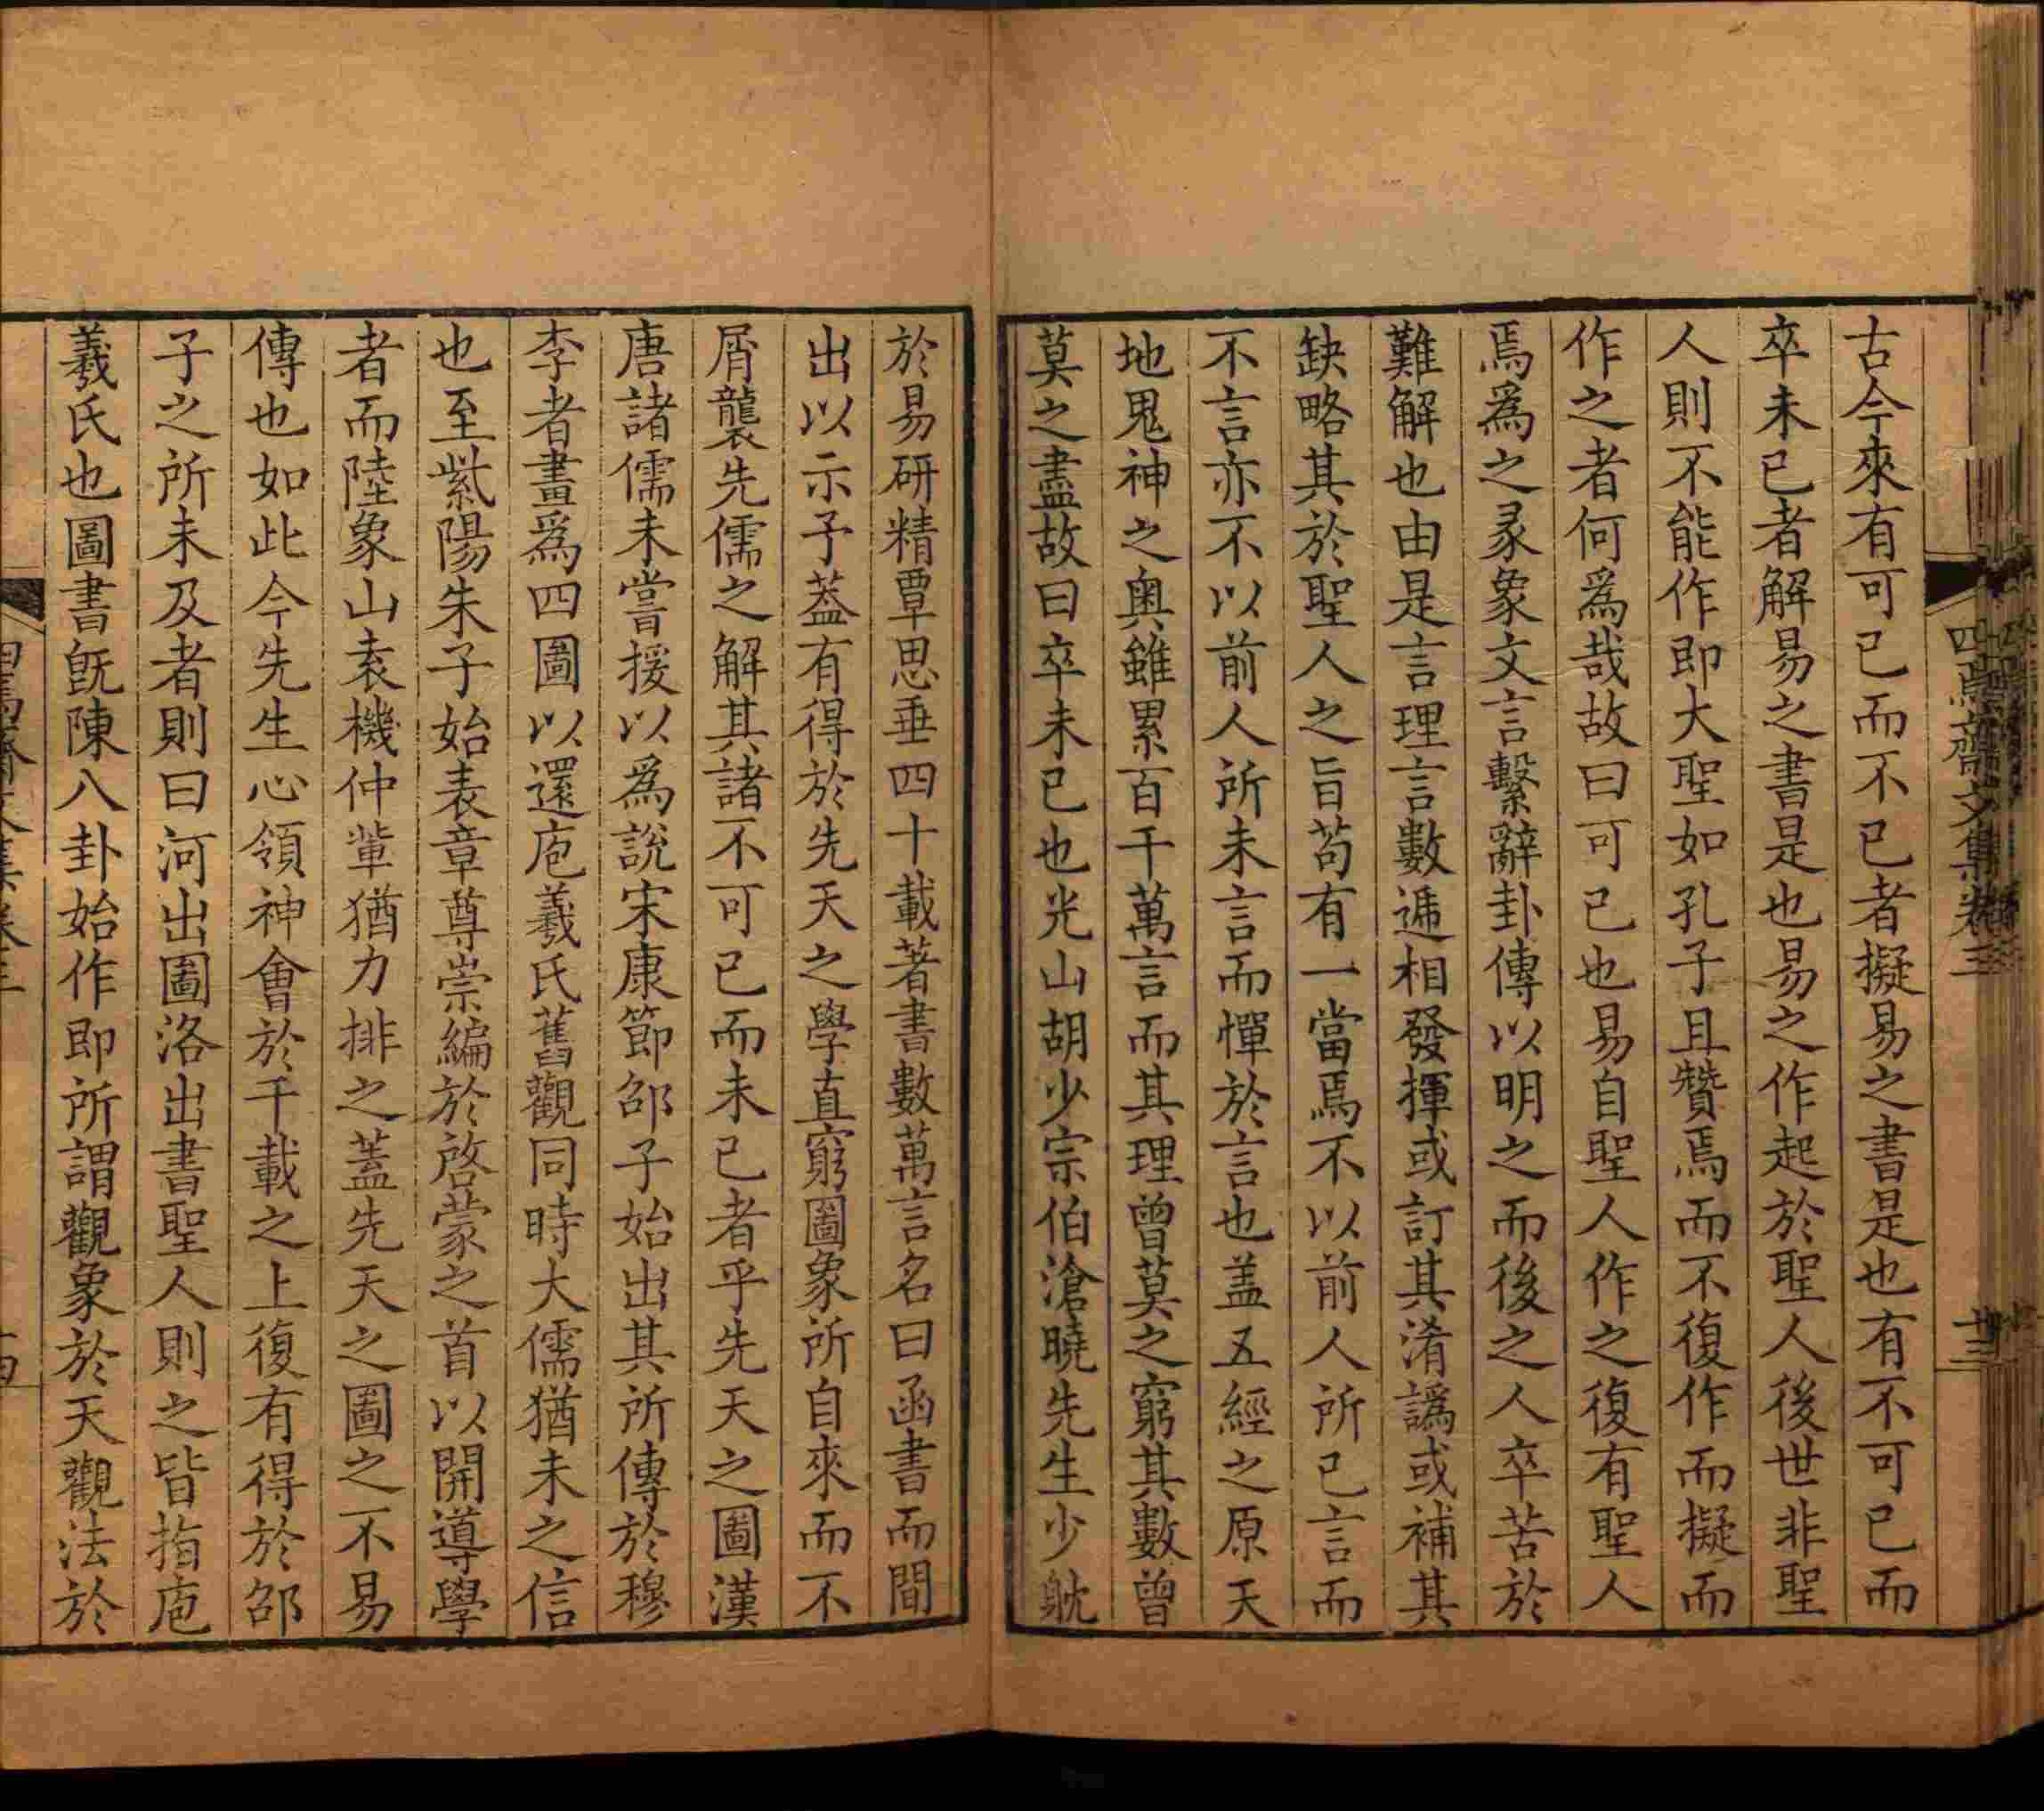 四焉齋文集卷三
廿三
古今來有可已而不已者擬易之書是也有不可已而
卒未已者解易之書是也易之作起於聖人後世非聖
人則不能作即大聖如孔子且贊焉而不復作而擬而
作之者何爲哉故曰可已也易自聖人作之復有聖人
焉爲之彖象文言繫辭卦傳以明之而後之人卒苦於
難解也由是言理言數遞相發揮或訂其淆譌或補其
缺略其於聖人之旨苟有一當焉不以前人所已言而
不言亦不以前人所未言而憚於言也盖五經之原天
地鬼神之奥雖累百千萬言而其理曾莫之窮其數曾
莫之盡故曰卒未已也光山胡少宗伯滄曉先生少躭
於易研精覃思垂四十載著書數萬言名曰函書而間
出以示予葢有得於先天之學直窮圖象所自來而不
屑襲先儒之解其諸不可已而未已者乎先天之圖漢
唐諸儒未嘗援以爲說宋康節邵子始出其所傳於穆
李者畫爲四圖以還庖羲氏舊觀同時大儒猶未之信
也至紫陽朱子始表章尊崇編於啓蒙之首以開導學
者而陸象山袁機仲輩猶力排之蓋先天之圖之不易
傳也如此今先生心領神會於千載之上復有得於邵
子之所未及者則曰河出圖洛出書聖人則之皆指庖
羲氏也圖書旣陳八卦始作即所謂觀象於天觀法於